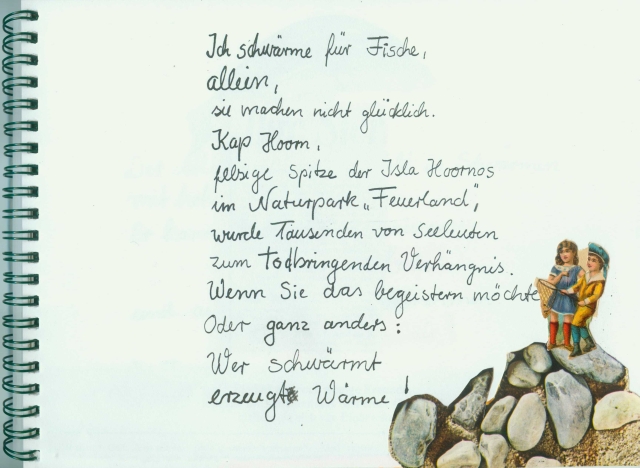 Ich schwärme für Fische,
allein,
sie machen nicht glücklich.
Kap Hoorn,
felsige Spitze der Isla Hoornos
im Naturpark „Feuerland",
wurde Tausenden von Seeleuten
zum todbringenden Verhängnis.
Wenn Sie das begeistern möchte
Oder ganz anders:
Wer schwärmt
erzeugt Wärme!